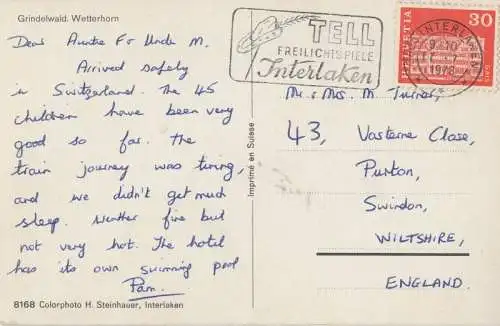 Grindelwald. Wetterhorn
Dear Auntie F & Uncle M.
Arrived safely
in Switzerland. The 45
children have been very
good so far. The
train journey was tiring,
and we didn't get much
sleep. Weather fine but
not very hot. The hotel
has its own swimming pool
Pam.
8168 Colorphoto H. Steinhauer, Interlaken
Imprimé en Suisse
TELL
FREILICHTSPIELE
Interlaken
INTERLAKEN
1978
HELVETIA
30
Mr. & Mrs. M. Turner,
43, Vasterne Close,
Purton,
Swindon,
WILTSHIRE,
ENGLAND.